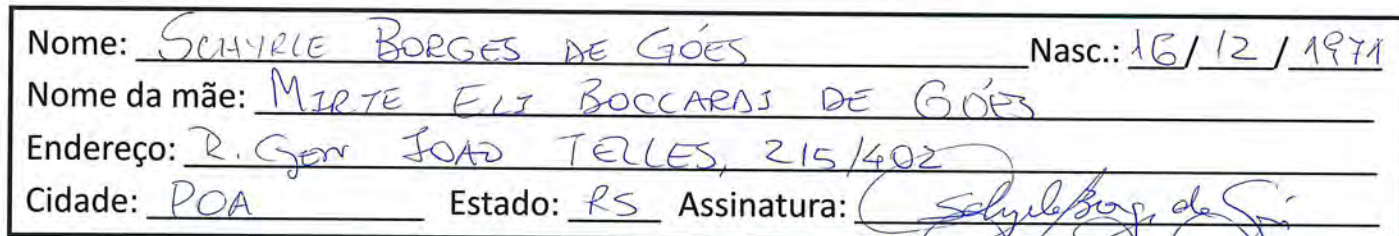 Nome: SCHYRLE BORGES DE GÓES Nasc.: 16/12/1971
Nome da mãe: MIRTE ELI BOCCARDI DE GÓES
Endereço: R. Gen JOAO TELLES, 215/402
Cidade: POA Estado: RS Assinatura: Schyrle Borges de Góes